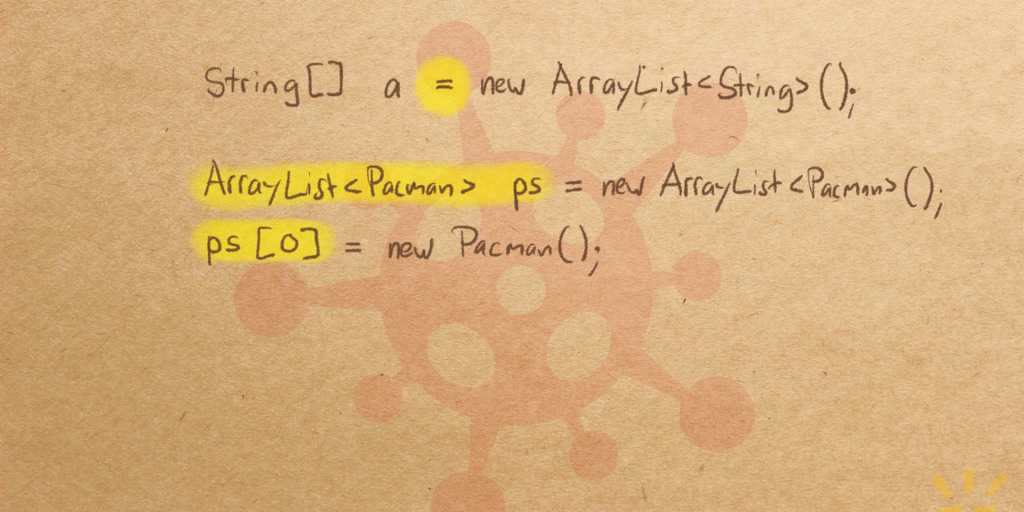 String[] a = new ArrayList<String>();
ArrayList<Pacman> ps = new ArrayList<Pacman>();
ps[0] = new Pacman();